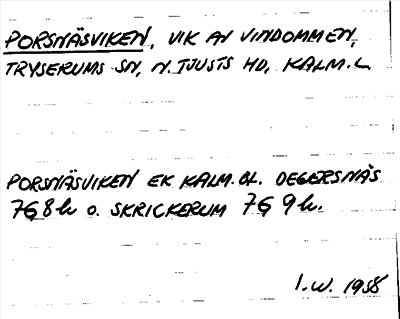 PORSNÄSVIKEN, VIK AV VINDOMMEN,
TRYSERUMS SN, N. TJUSTS HD, KALM. L.
PORSNÄSVIKEN EK KALM. BL. DEGERSNÄS
7G 8h O. SKRICKERUM 7G 9h.
I.W. 1958